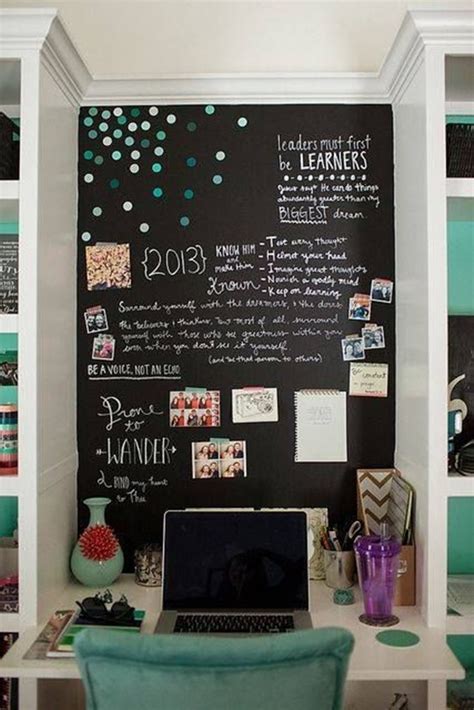 leaders must first
be LEARNERS
Jesus says He can do things
abundantly greater than my
BIGGEST dream.
{2013}
KNOW HIM
and make Him
Known
- Test every thought
- Helmet your head
- Imagine great thoughts
- Nourish a godly mind
- Keep on learning
Surround yourself with the dreamers, & the doers
the believers & thinkers, but most of all, surround
yourself with those who see greatness within you
even when you don't see it yourself
(and be that person to others)
BE A VOICE, NOT AN ECHO
Be constant
in prayer
Prone
to
WANDER
BIND my heart
to Thee